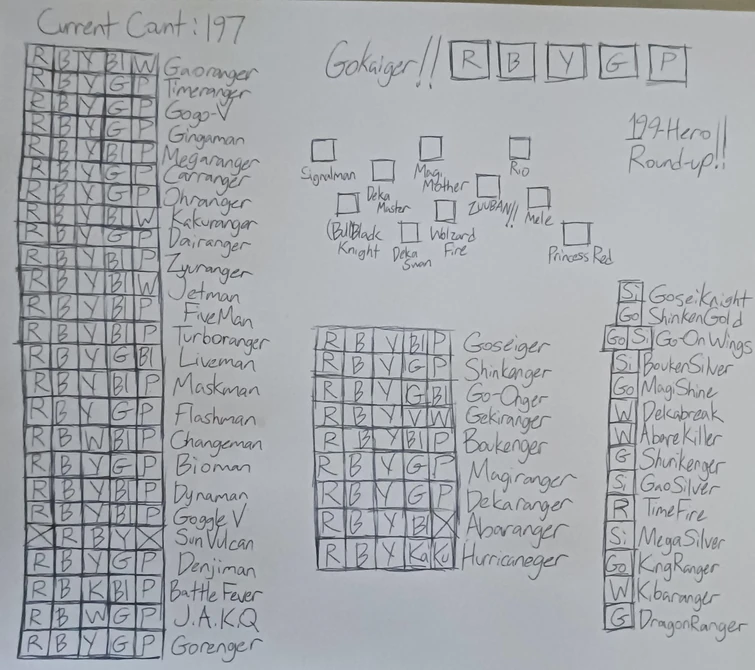 Current Count: 197
R B Y Bl W Gaoranger
R B Y G P Timeranger
R B Y G P Gogo-V
R B Y G P Gingaman
R B Y Bl P Megaranger
R B Y G P Carranger
R B Y G P Ohranger
R B Y Bl W Kakuranger
R B Y G P Dairanger
R B Y Bl P Zyuranger
R B Y Bl W Jetman
R B Y Bl P FiveMan
R B Y Bl P Turboranger
R B Y G Bl Liveman
R B Y Bl P Maskman
R B Y G P Flashman
R B W Bl P Changeman
R B Y G P Bioman
R B Y Bl P Dynaman
R B Y Bl P Goggle V
X R B Y X Sun Vulcan
R B Y G P Denjiman
R B K Bl P Battle Fever
R B W G P J.A.K.Q
R B Y G P Gorenger
Gokaiger!! R B Y G P
199-Hero
Round-up!!
Signalman
Deka
Master
Magi
Mother
Rio
(Bull)Black
Knight
Deka
Swan
Wolzard
Fire
ZUUBAN!!
Mele
Princess Red
R B Y Bl P Goseiger
R B Y G P Shinkenger
R B Y G Bl Go-Onger
R B Y V W Gekiranger
R B Y Bl P Boukenger
R B Y G P Magiranger
R B Y G P Dekaranger
R B Y Bl X Abaranger
R B Y Ka Ku Hurricaneger
Si GoseiKnight
Go ShinkenGold
Go Si Go-On Wings
Si BoukenSilver
Go MagiShine
W Dekabreak
W AbareKiller
G Shurikenger
Si GaoSilver
R TimeFire
Si MegaSilver
Go KingRanger
W Kibaranger
G DragonRanger